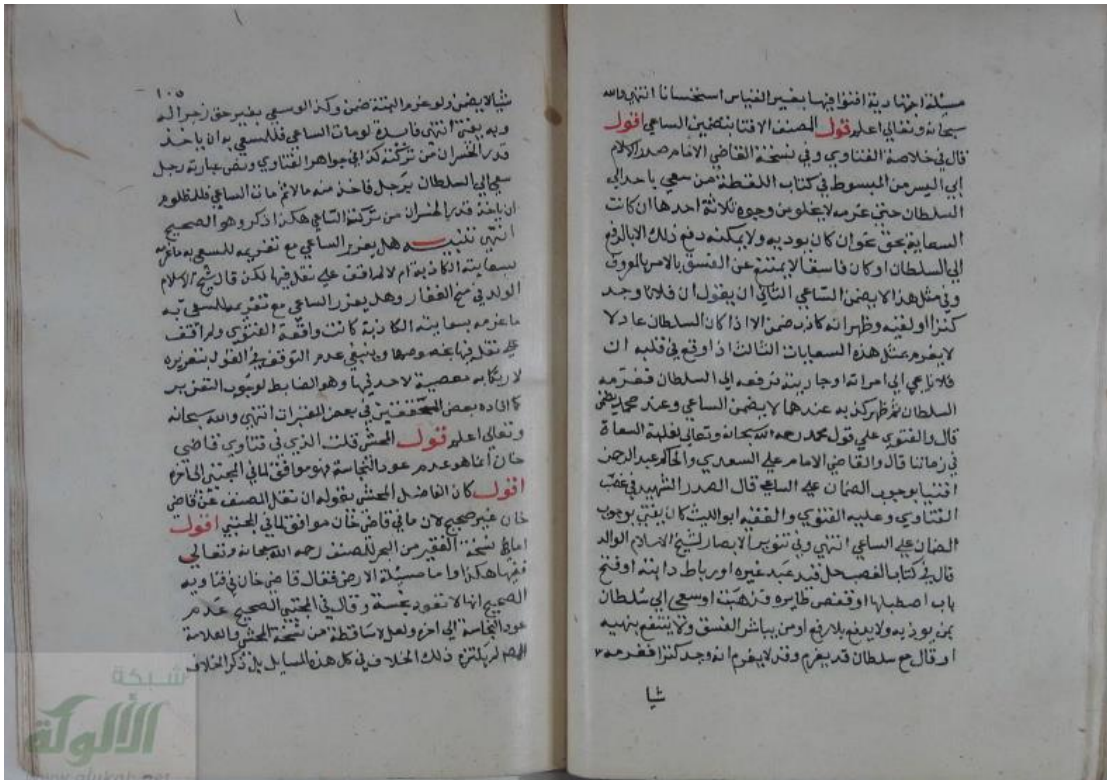 مسئلة اجتهادية افتوا فيها بغير القياس استحسانا انتهى والله
سبحانه وتعالى اعلم قول المصنف الافتا بتضمين الساعي اقول
قال في خلاصة الفتاوي وفي نسخة القاضي الامام صدر الاسلام
ابي اليسر من المبسوط في كتاب اللقطة من سعى باحد الي
السلطان حتى غرمه لا يخلو من وجوه ثلاثة احدها ان كانت
السعاية بحق نحو ان كان يوديه ولا يمكنه دفع ذلك الا بالرفع
الي السلطان او كان فاسقا لا يمتنع عن الفسق بالامر بالمعروف
وفي مثل هذا لا يضمن الساعي الثاني ان يقول ان فلانا وجد
كنزا او لقيه وظهر انه كاذب ضمن الا اذا كان السلطان عادلا
لا يغرم بمثل هذه السعايات الثالث اذا وقع في قلبه ان
فلانا يجي الي امراته او جاريته فرفعه الي السلطان فغرمه
السلطان ثم ظهر كذبه عندهما لا يضمن الساعي وعند محمد يضمن
قال والفتوي علي قول محمد رحمه الله سبحانه وتعالى لغلبة السعاة
في زماننا قال والقاضي الامام علي السعدي والحاكم عبد الرحمن
افتيا بوجوب الضمان علي الساعي قال الصدر الشهيد في غصب
الفتاوي وعليه الفتوي والفقيه ابو الليث كان يفتي بوجوب
الضمان علي الساعي انتهى وفي تنوير الابصار لشيخ الاسلام الوالد
قال في كتاب الغصب حل قيد عبد غيره او رباط دابته او فتح
باب اصطبلها او قفص طايره فذهبت او سعى الي سلطان
بمن يوذيه ولا يدفع بلا رفع او من يباشر الفسق ولا يمتنع بنهيه
او قال مع سلطان قد يغرم وقد لا يغرم انه وجد كنزا فغرمه
شيا
١٠٥
شيا لا يضمن ولو غرم البتة ضمن وكذا لو سعى بغير حق زجرا له
وبه يفتى انتهى فايدة لو مات الساعي فللمسعي به ان ياخذ
قدر الخسران من تركته كذا في جواهر الفتاوي ونص عبارته رجل
سعى الي السلطان برجل فاخذ منه مالا ثم مات الساعي فللمظلوم
ان ياخذ قدر الخسران من تركة الساعي هكذا ذكر وهو الصحيح
انتهى تنبيه هل يعزر الساعي مع تغريمه للمسعي به ما غرمه
بسعايته الكاذبة ام لا لم اقف علي نقل فيها لكن قال شيخ الاسلام
الوالد في منح الغفار وهل يعزر الساعي مع تغريمه للمسعي به
ما غرمه بسعايته الكاذبة كانت واقعة الفتوي ولم اقف
علي نقل فيها بخصوصها وينبغي عدم التوقف في القول بتعزيره
لارتكابه معصية لا حد فيها وهو الضابط لوجوب التعزير
كما افاده بعض المحققين في بعض المعتبرات انتهى والله سبحانه
وتعالى اعلم قول المحشي قلت الذي في فتاوي قاضي
خان انما هو عدم عود النجاسة فهو موافق لما في المجتبي الى اخره
اقول كان الفاضل المحشي بقوله ان نقل المصنف عن قاضي
خان غير صحيح لان ما في قاضي خان موافق لما في المجتبي اقول
اما في نسخة الفقير من البحر للمصنف رحمه الله سبحانه وتعالى
ففيها هكذا واما مسئلة الارض فقال قاضي خان في فتاويه
الصحيح انها لا تعود نجسة وقال في المجتبي الصحيح عدم
عود النجاسة الي اخره ولعل لا ساقطة من نسخة المحشي والعلامة
لم يلتزم ذلك الخلاف في كل هذه المسايل بل ذكر الخلاف
شبكة
الألوكة
www.alukah.net